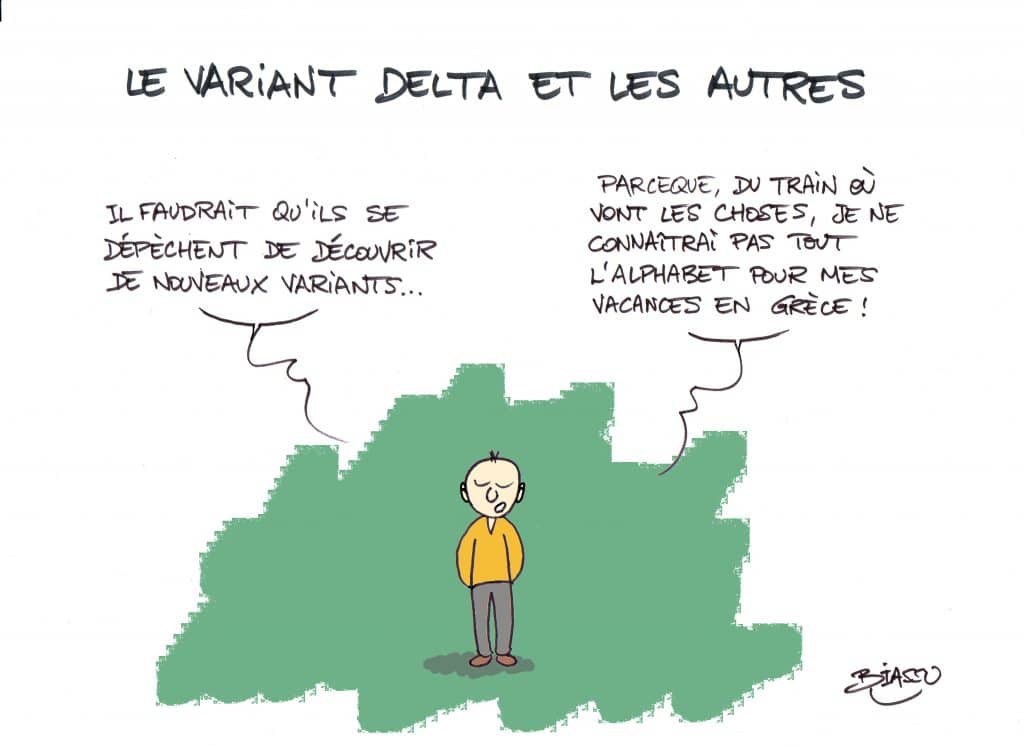 LE VARIANT DELTA ET LES AUTRES
IL FAUDRAIT QU'ILS SE
DÉPÈCHENT DE DÉCOUVRIR
DE NOUVEAUX VARIANTS...
PARCEQUE, DU TRAIN OÙ
VONT LES CHOSES, JE NE
CONNAÎTRAI PAS TOUT
L'ALPHABET POUR MES
VACANCES EN GRÈCE !